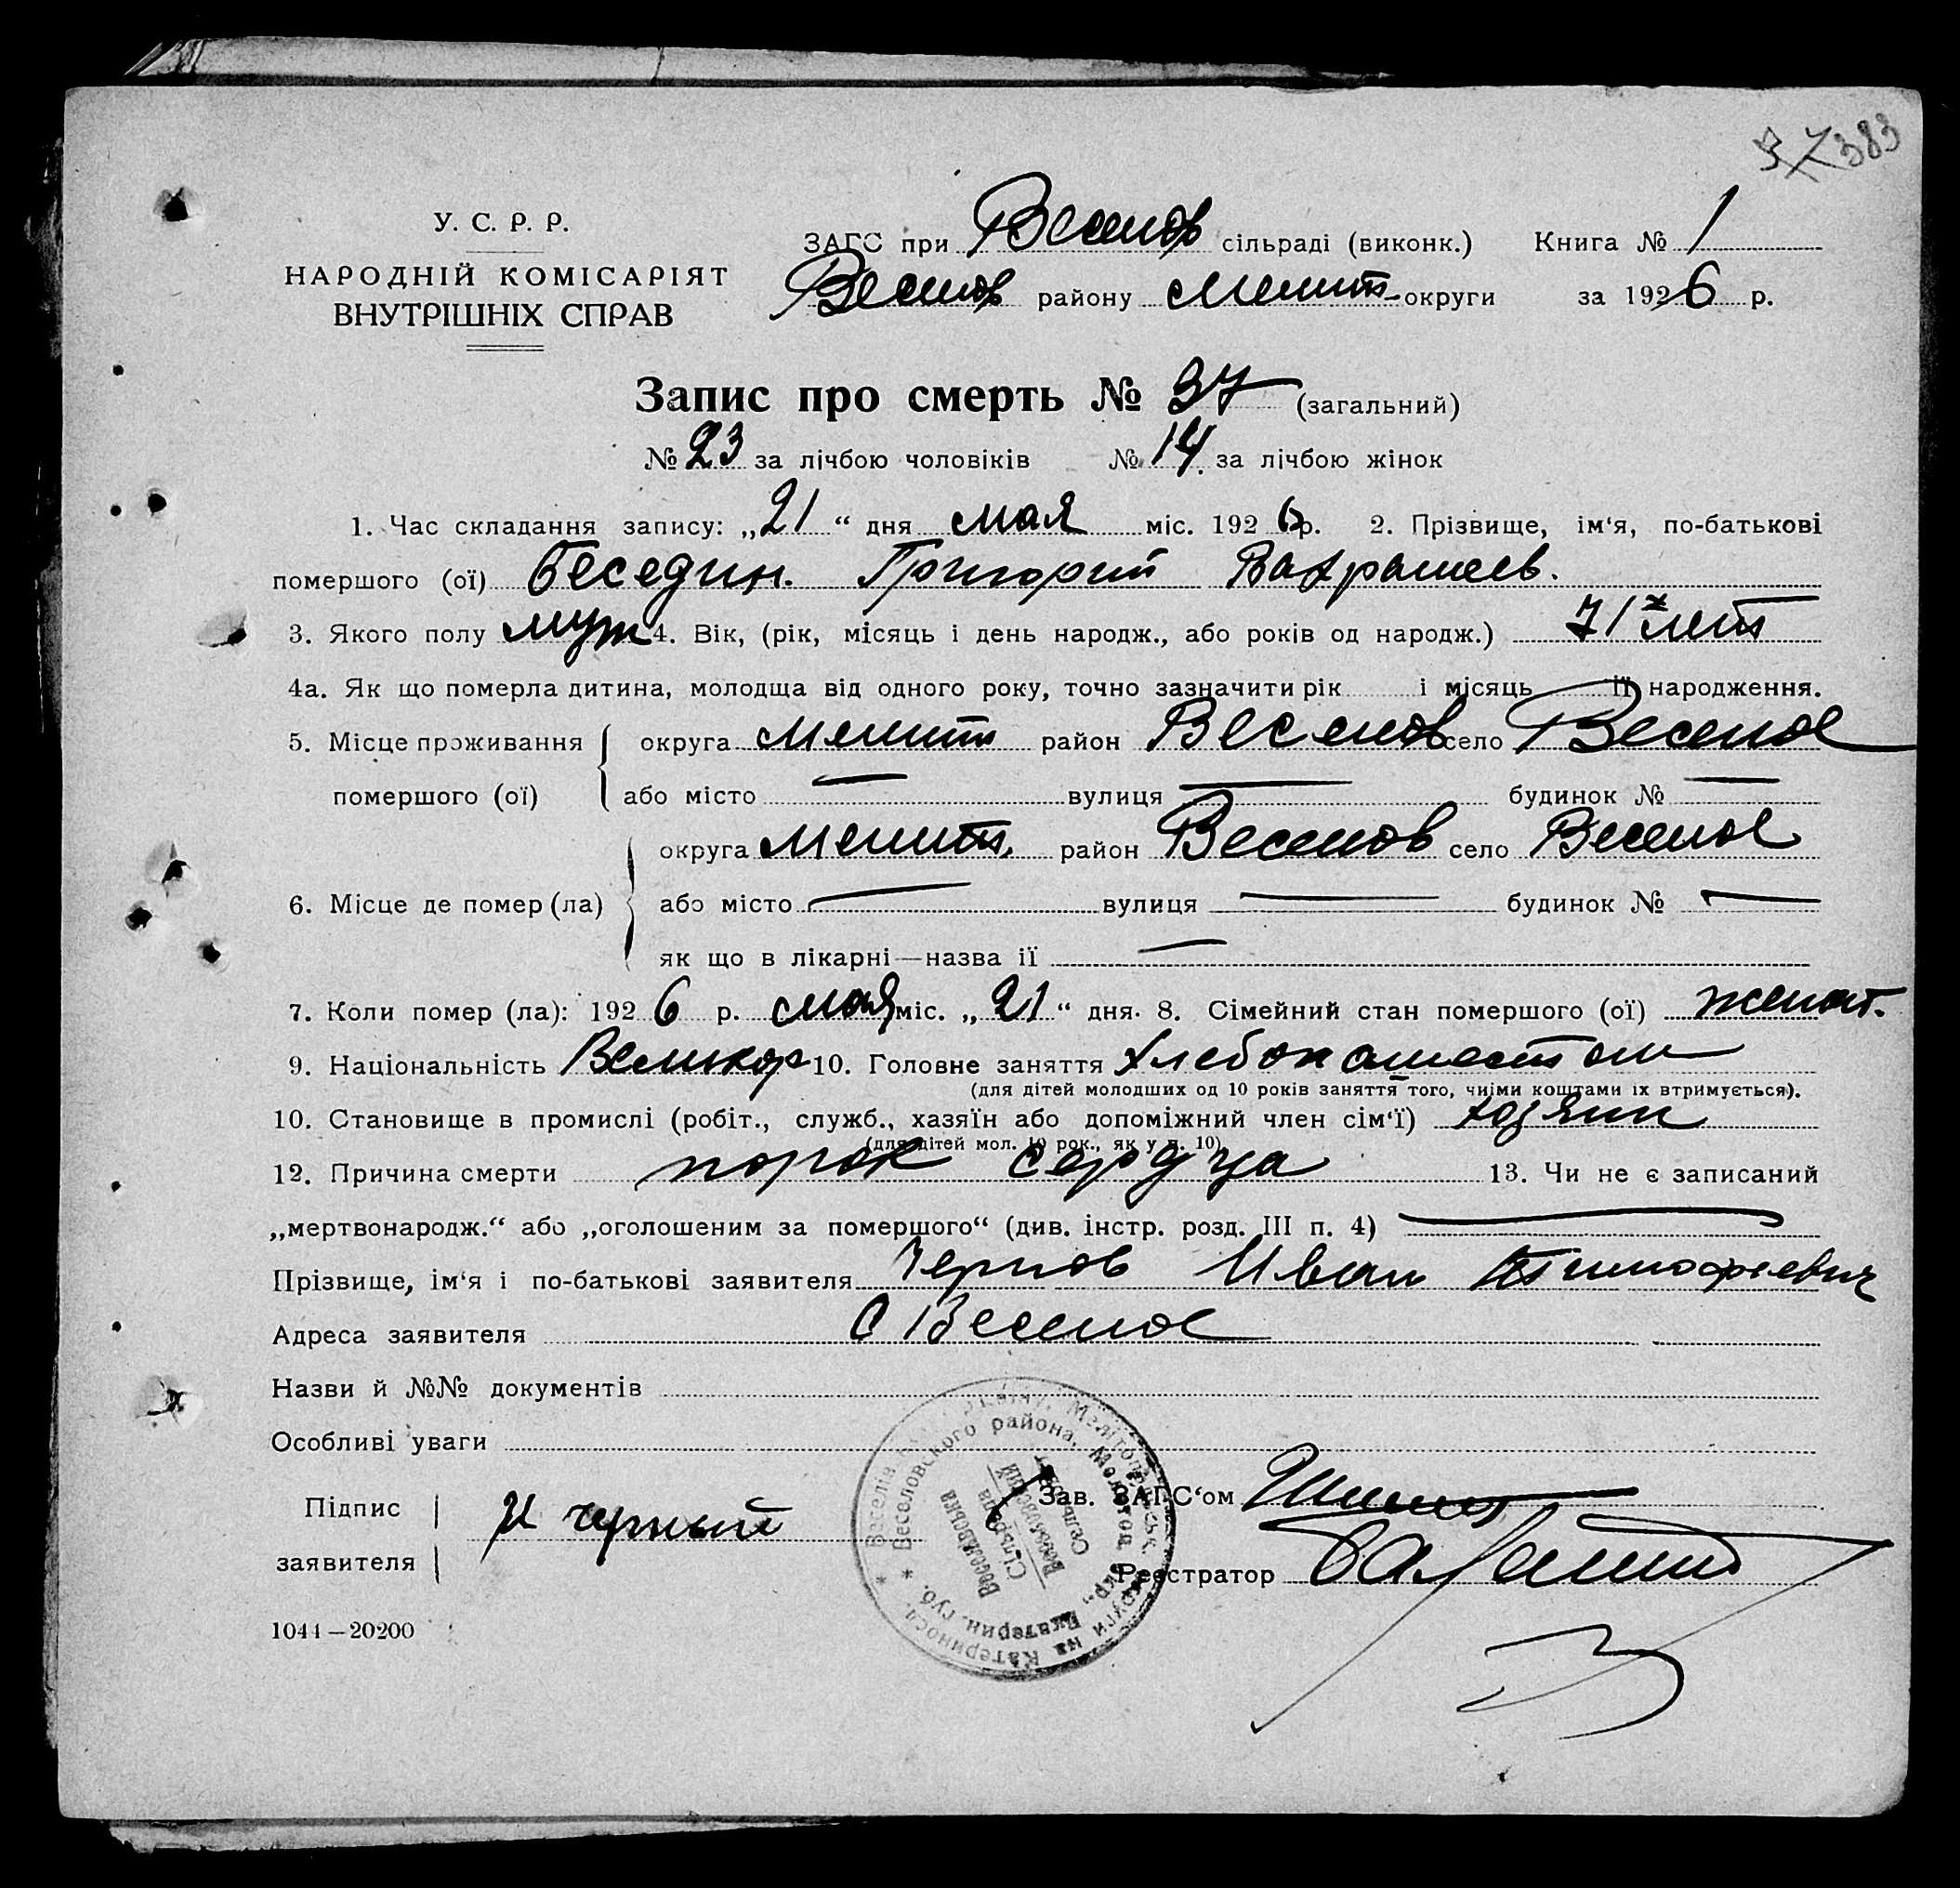 383
У. С. Р. Р.
НАРОДНІЙ КОМІСАРІЯТ
ВНУТРІШНІХ СПРАВ
ЗАГС при Веселов сільраді (виконк.) Книга № 1
Веселов району Мелит. округи за 1926 р.
Запис про смерть № 37 (загальний)
№ 23 за лічбою чоловіків № 14 за лічбою жінок
1. Час складання запису: „21“ дня мая міс. 1926 р. 2. Прізвище, ім‘я, по-батькові
помершого (ої) Беседин. Григорий Вахрамеев.
3. Якого полу муж 4. Вік, (рік, місяць і день народж., або років од народж.) 71 лет
4а. Як що померла дитина, молодща від одного року, точно зазначити рік і місяць її народження.
5. Місце проживання округа Мелит район Веселов село Веселое
помершого (ої) або місто — вулиця — будинок № —
округа Мелит. район Веселов село Веселое
6. Місце де помер (ла) або місто — вулиця — будинок № —
як що в лікарні—назва її —
7. Коли помер (ла): 1926 р. мая міс. „21“ дня. 8. Сімейний стан помершого (ої) женат.
9. Національність Великор 10. Головне заняття хлебопашеством
(для дітей молодших од 10 років заняття того, чиїми коштами їх втримується).
10. Становище в промислі (робіт., служб., хазяїн або допоміжний член сім‘ї) хозяин
(для дітей мол. 10 рок., як у п. 10)
12. Причина смерти порок сердца 13. Чи не є записаний
„мертвонародж.“ або „оголошеним за помершого“ (див. інстр. розд. III п. 4) —
Прізвище, ім‘я і по-батькові заявителя Чернов Иван Тимофеевич
Адреса заявителя С Веселое
Назви й №№ документів
Особливі уваги
Підпис
заявителя И черный
Зав. ЗАГС‘ом
Реєстратор
Веселовского района, Мелитоп. окр., Екатерин. губ.
Веселівська
Сільрада
Веселовский
Сельсовет
1044—20200